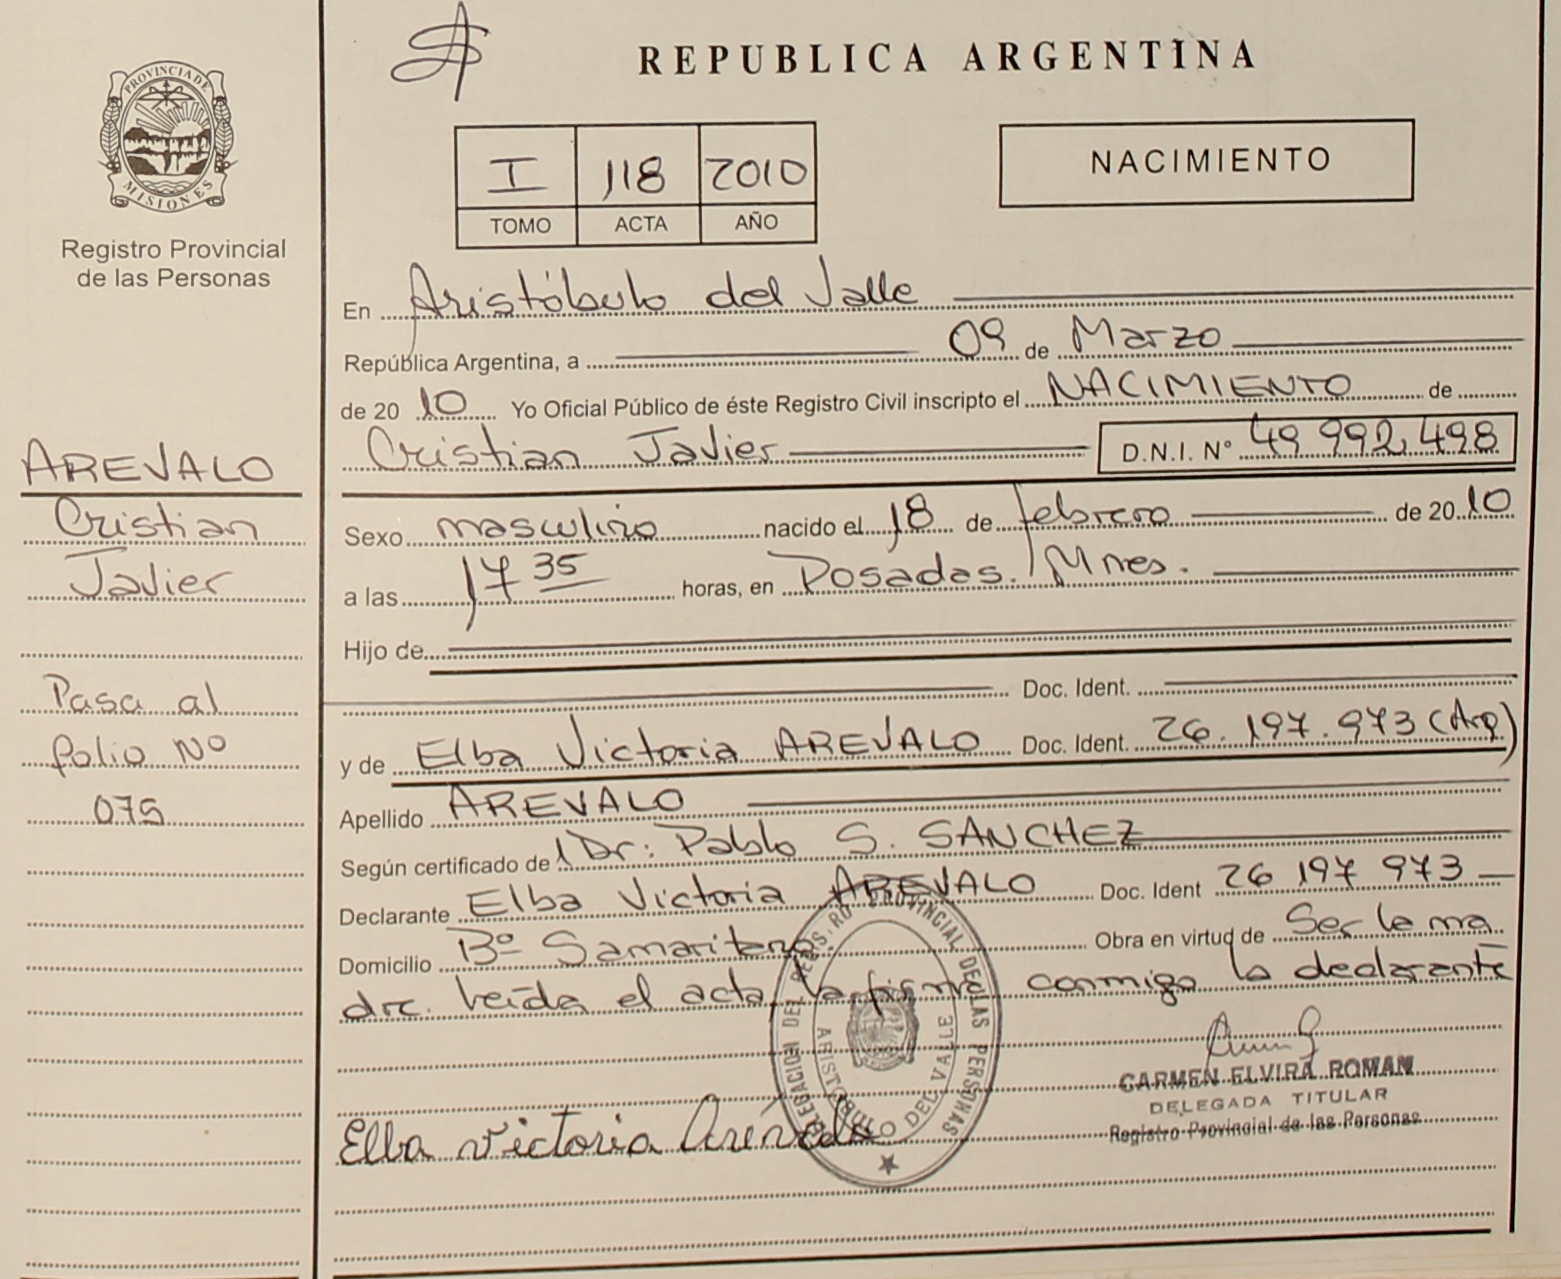 PROVINCIA DE
MISIONES
Registro Provincial
de las Personas
AREVALO
Cristian
Javier
Pasa al
folio Nº
075
REPUBLICA ARGENTINA
I 118 2010
TOMO ACTA AÑO
NACIMIENTO
En Aristóbulo del Valle
República Argentina, a 09 de Marzo
de 20 10 Yo Oficial Público de éste Registro Civil inscripto el NACIMIENTO de
Cristian Javier D.N.I. Nº 49 992 498
Sexo masculino nacido el 18 de febrero de 20 10
a las 17 35 horas, en Posadas. Mnes.
Hijo de
Doc. Ident.
y de Elba Victoria AREVALO Doc. Ident. 26.197.973 (Arg)
Apellido AREVALO
Según certificado de Dr: Pablo S. SANCHEZ
Declarante Elba Victoria AREVALO Doc. Ident 26 197 973
Domicilio Bº Samaritano Obra en virtud de Ser la ma
dre. leída el acta, la firma conmigo la declarante
DELEGACION DEL REGIS.RO PROVINCIAL DE LAS PERSONAS
ARISTOBULO DEL VALLE
CARMEN ELVIRA ROMAN
DELEGADA TITULAR
Registro Provincial de las Personas
Elba Victoria Arévalo